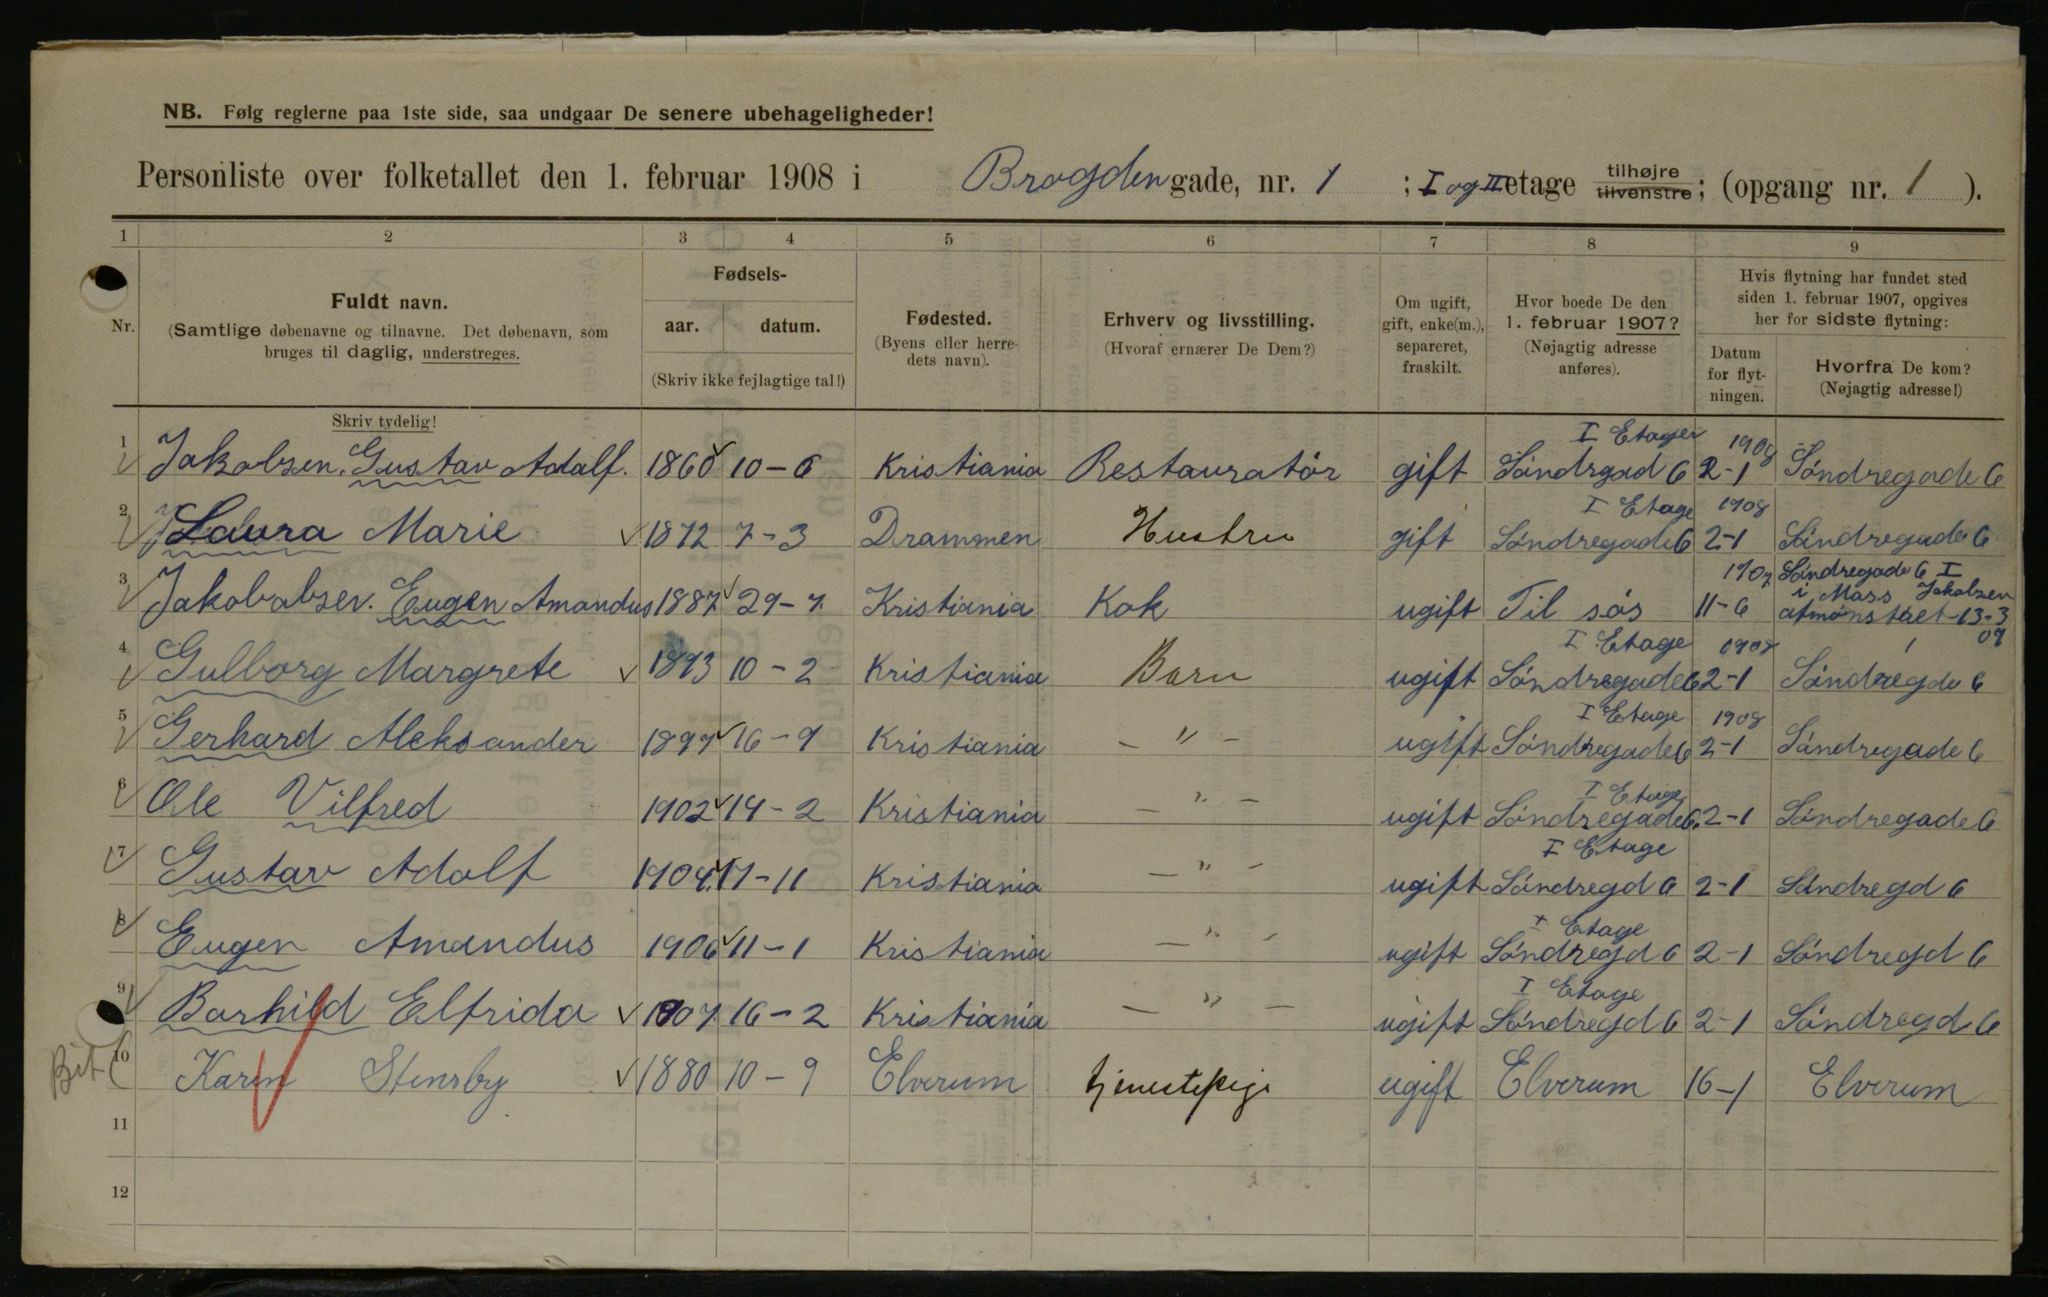 NB. Følg reglerne paa 1ste side, saa undgaar De senere ubehageligheder!
Personliste over folketallet den 1. februar 1908 i Brogden gade, nr. 1 ; I og II etage tilhøjre tilvenstre; (opgang nr. 1 ).
1 2 3 4 5 6 7 8 9
Nr. Fuldt navn. (Samtlige døbenavne og tilnavne. Det døbenavn, som bruges til daglig, understreges. Skriv tydelig!
Fødsels- aar. datum. (Skriv ikke fejlagtige tal!)
Fødested. (Byens eller herredets navn).
Erhverv og livsstilling. (Hvoraf ernærer De Dem?)
Om ugift, gift, enke(m.), separeret, fraskilt.
Hvor boede De den 1. februar 1907? (Nøjagtig adresse anføres).
Hvis flytning har fundet sted siden 1. februar 1907, opgives her for sidste flytning:
Datum for flytningen. Hvorfra De kom? (Nøjagtig adresse!)
I Etager 1908
1 Jakobsen. Gustav Adolf. 1860 10-6 Kristiania Restauratör gift Söndrgad 6 2-1 Söndregade 6
I Etage 1908
2 Laura Marie 1872 7-3 Drammen Hustru gift Söndregade 6 2-1 Söndregade 6
1907 Söndregade 6 I
i Mass Jakobsen
3 Jakobabsen. Eugen Amandus 1887 29-7. Kristiania Kok ugift Til sös 11-6 afmönstaet 13-3
07
I Etage 1908
4 Gulborg Margrete 1893 10-2 Kristiania Barn ugift Söndregade 6 2-1 Söndregde 6
I Etage 1908
5 Gerhard Aleksander 1897 16-9 Kristiania -"- ugift Söndregade 6 2-1 Söndregade 6
I Etage
6 Ole Vilfred 1902 14-2 Kristiania -"- ugift Söndregade 6. 2-1 Söndregade 6
I Etage
7 Gustav Adolf 1904. 17-11 Kristiania -"- ugift Söndregd 6 2-1 Söndregd 6
I Etage
8 Eugen Amandus 1906 11-1 Kristiania -"- ugift Söndregd 6 2-1 Söndregd 6
I Etage
9 Borhild Elfrida 1907. 16-2 Kristiania -"- ugift Söndregd 6 2-1 Söndregd 6
10 Karen Stensby 1880 10-9 Elverum tjenestepige ugift Elverum 16-1 Elverum
11
12